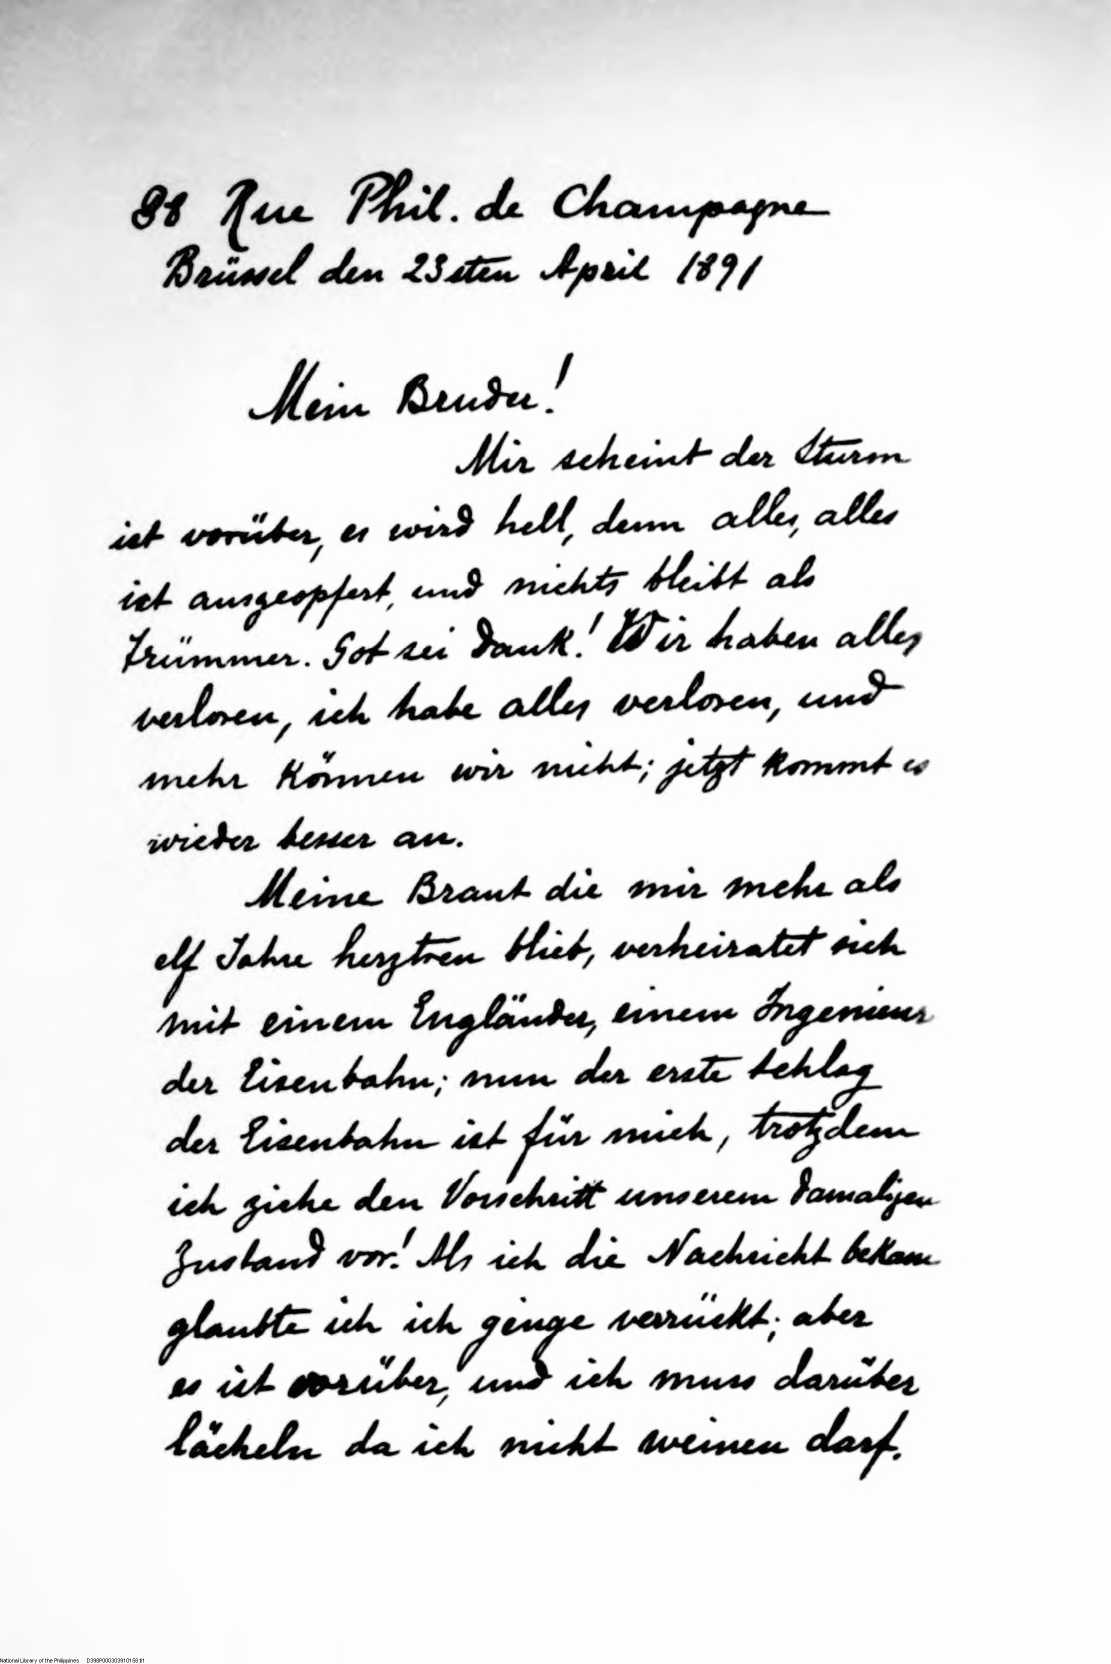 38 Rue Phil. de Champagne
Brüssel den 23sten April 1891
Mein Bruder!
Mir scheint der Sturm
ist vorüber, es wird hell, denn alles, alles
ist ausgeopfert, und nichts bleibt als
Trümmer. Got sei Dank! Wir haben alles
verloren, ich habe alles verloren, und
mehr können wir nicht; jetzt kommt es
wieder besser an.
Meine Braut die mir mehr als
elf Jahre herztreu blieb, verheiratet sich
mit einem Engländer, einem Ingenieur
der Eisenbahn; nun der erste Schlag
der Eisenbahn ist für mich, trotzdem
ich ziehe den Vorschritt unserem damaligen
Zustand vor! Als ich die Nachricht bekam
glaubte ich ich ginge verrückt; aber
es ist vorüber, und ich muss darüber
lächeln da ich nicht weinen darf.
National Library of the Philippines